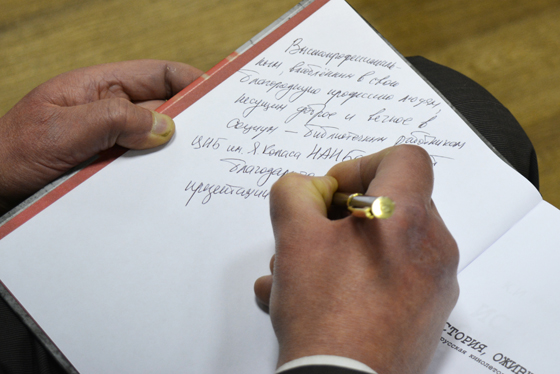 Высокопрофессиональ-
ным, влюблённым в свою
благородную профессию людям,
несущим доброе и вечное в
социум – библиотечным работникам
ЦНБ им. Я. Коласа НАН
благодар
презентации
СТОРИЯ, ОЖИВ
русская кинолето